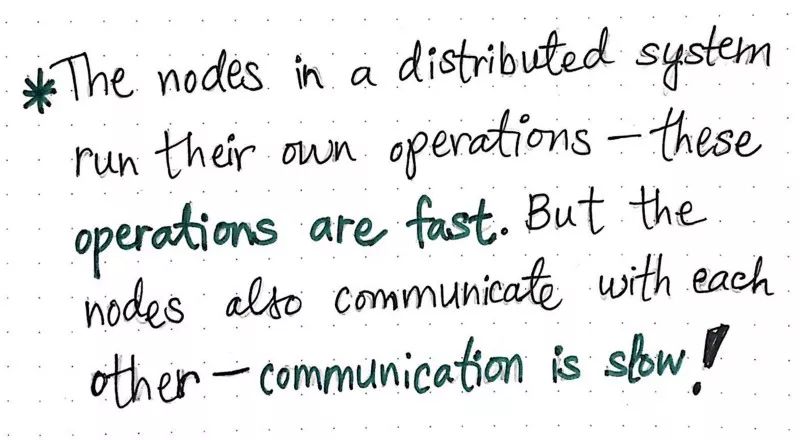 *The nodes in a distributed system
run their own operations — these
operations are fast. But the
nodes also communicate with each
other — communication is slow!